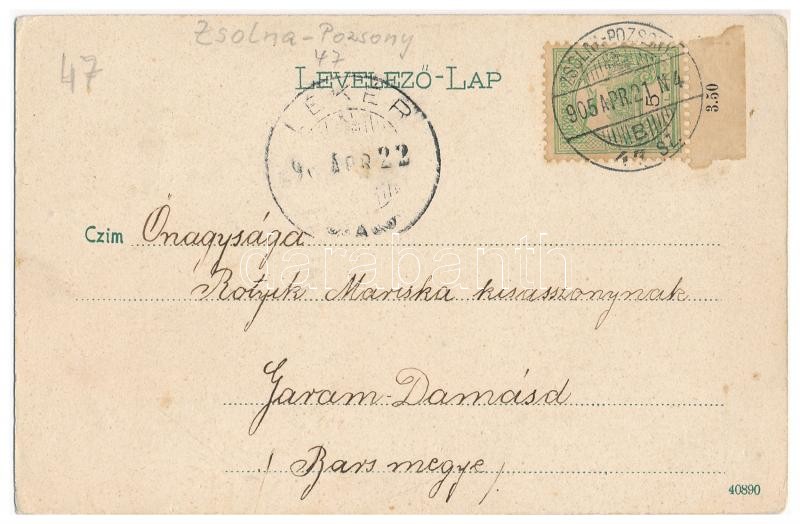 Zsolna-Pozsony
47
47
LEVELEZŐ-LAP
ZSOLNA-POZSONY
905 APR. 21 N4
B
47 SZ.
5
3.50
LÉKÉR
APR 22
Czim Önagysága
Rotyik Mariska kisasszonynak
Garam-Damásd
/ Bars megye /
darabanth
40890